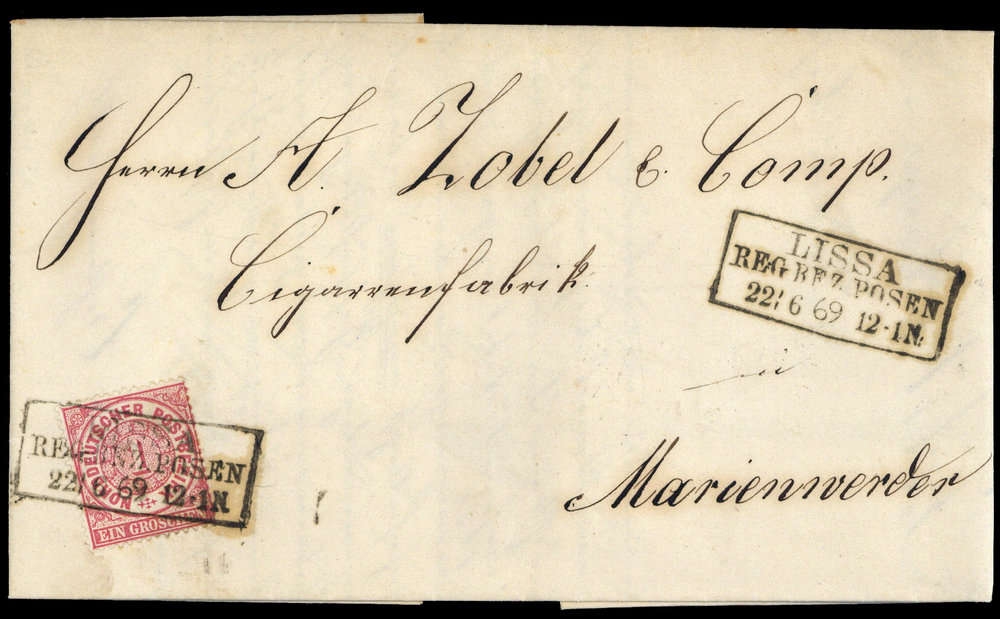 Herrn A. Zobel & Comp.
Cigarrenfabrik.
LISSA
REG BEZ POSEN
22 6 69 12-1N
in
Marienwerder
NORDDEUTSCHER POSTBEZIRK
1
EIN GROSCHEN
REG BEZ POSEN
22 6 69 12-1N